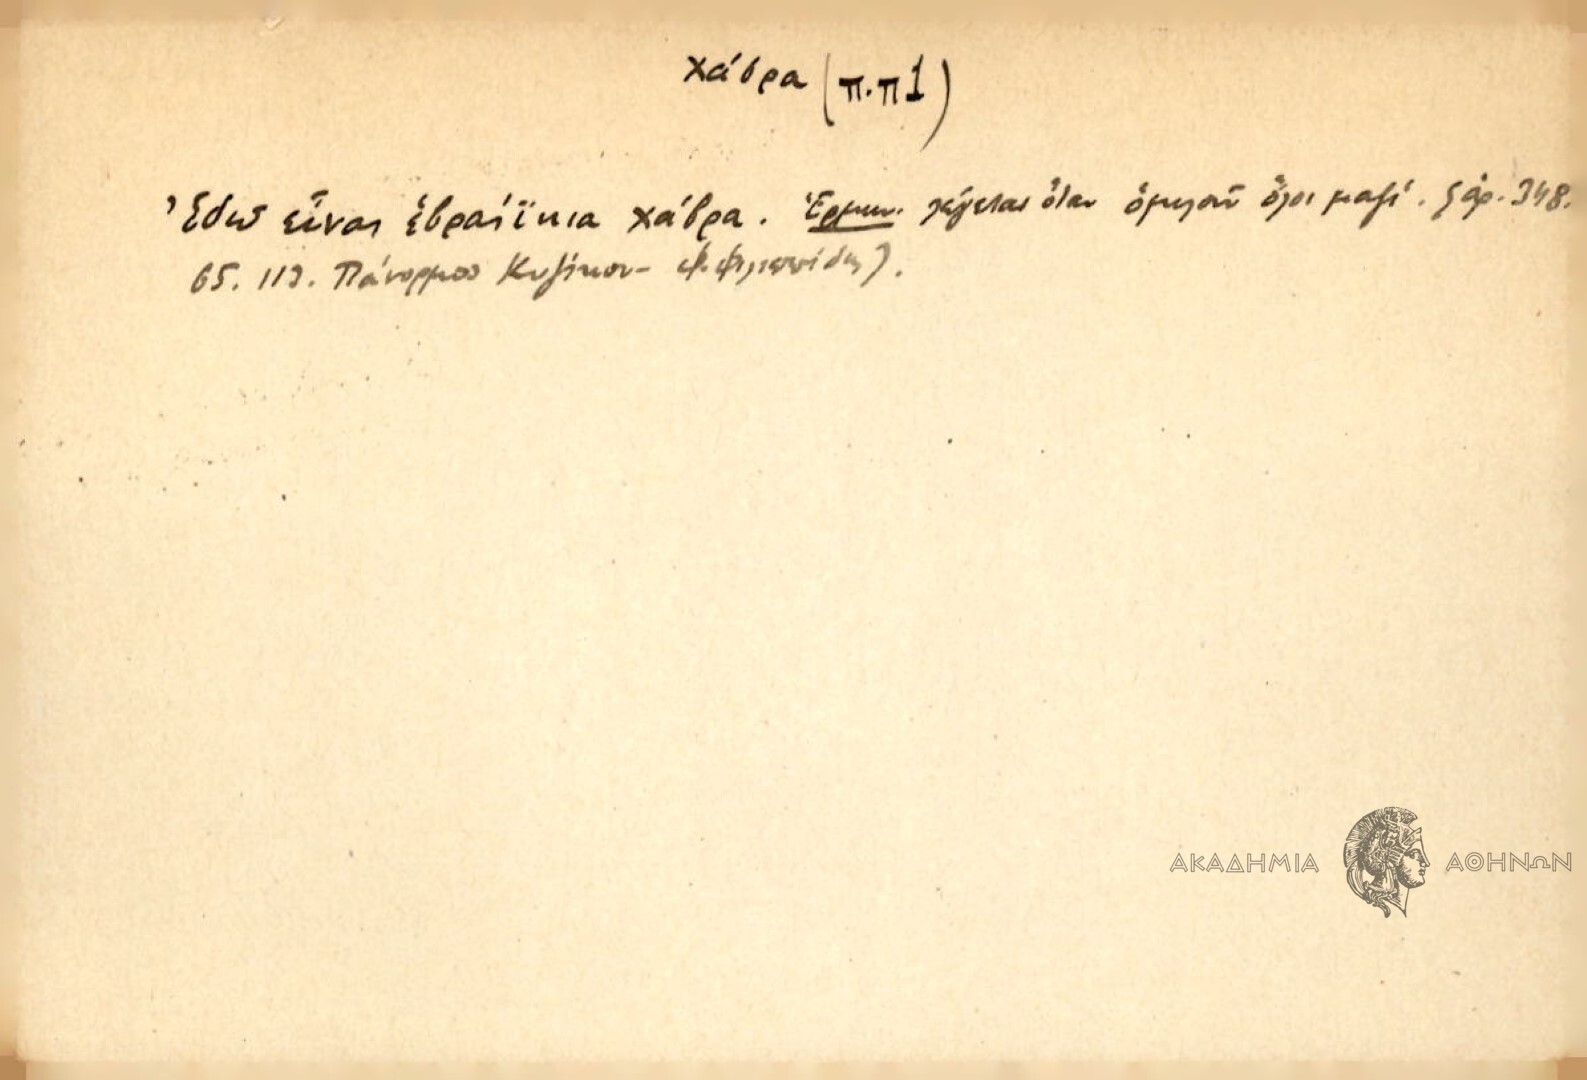 χάβρα (π.π1)
Ἐδῶ εἶναι ἑβραίϊκια χάβρα. Ἑρμην. λέγεται ὅταν ὁμιλοῦν ὅλοι μαζί. ἀρ. 348.
65. 113. Πάνορμος Κυζίκου - Φιλιππίδης).
ΑΚΑΔΗΜΙΑ ΑΘΗΝΩΝ